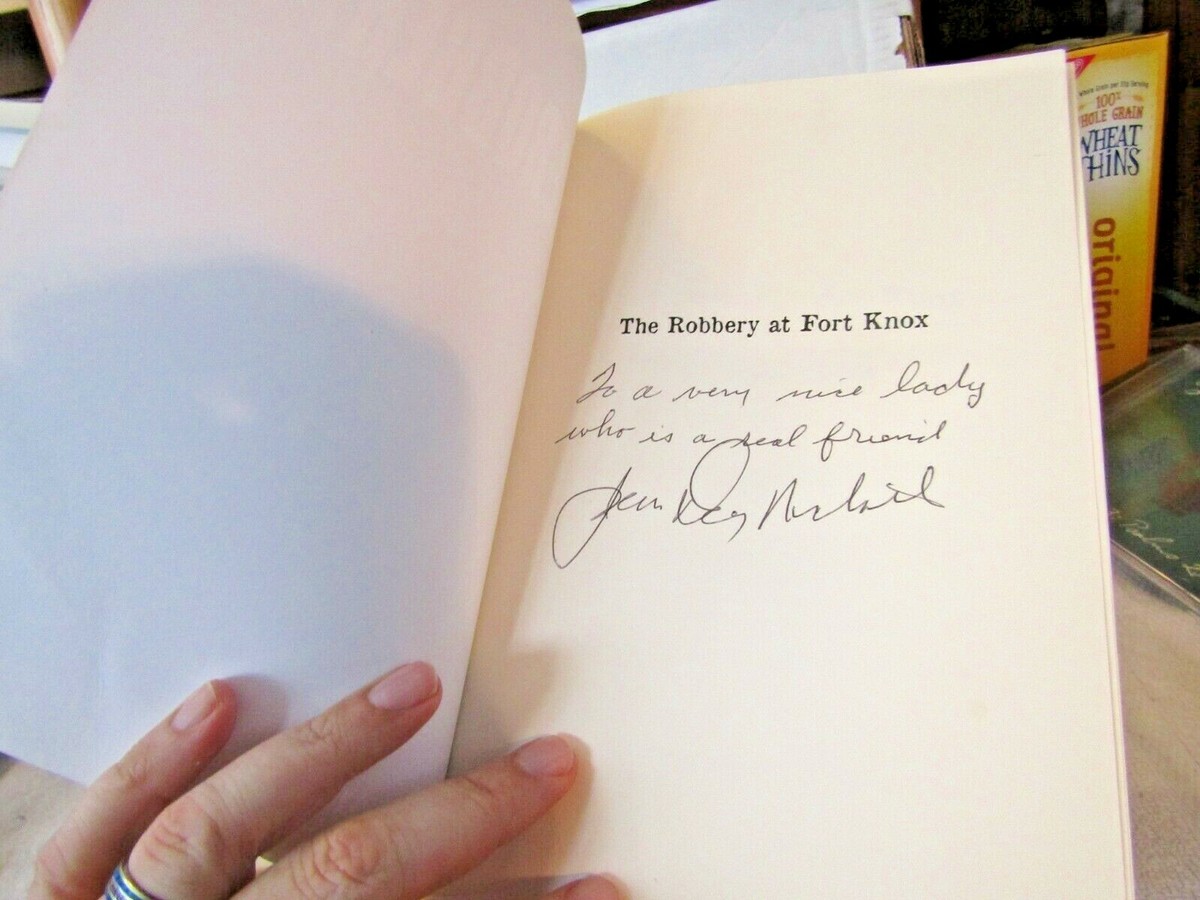 The Robbery at Fort Knox
To a very nice lady
who is a real friend
100%
WHOLE GRAIN
WHEAT
THINS
original